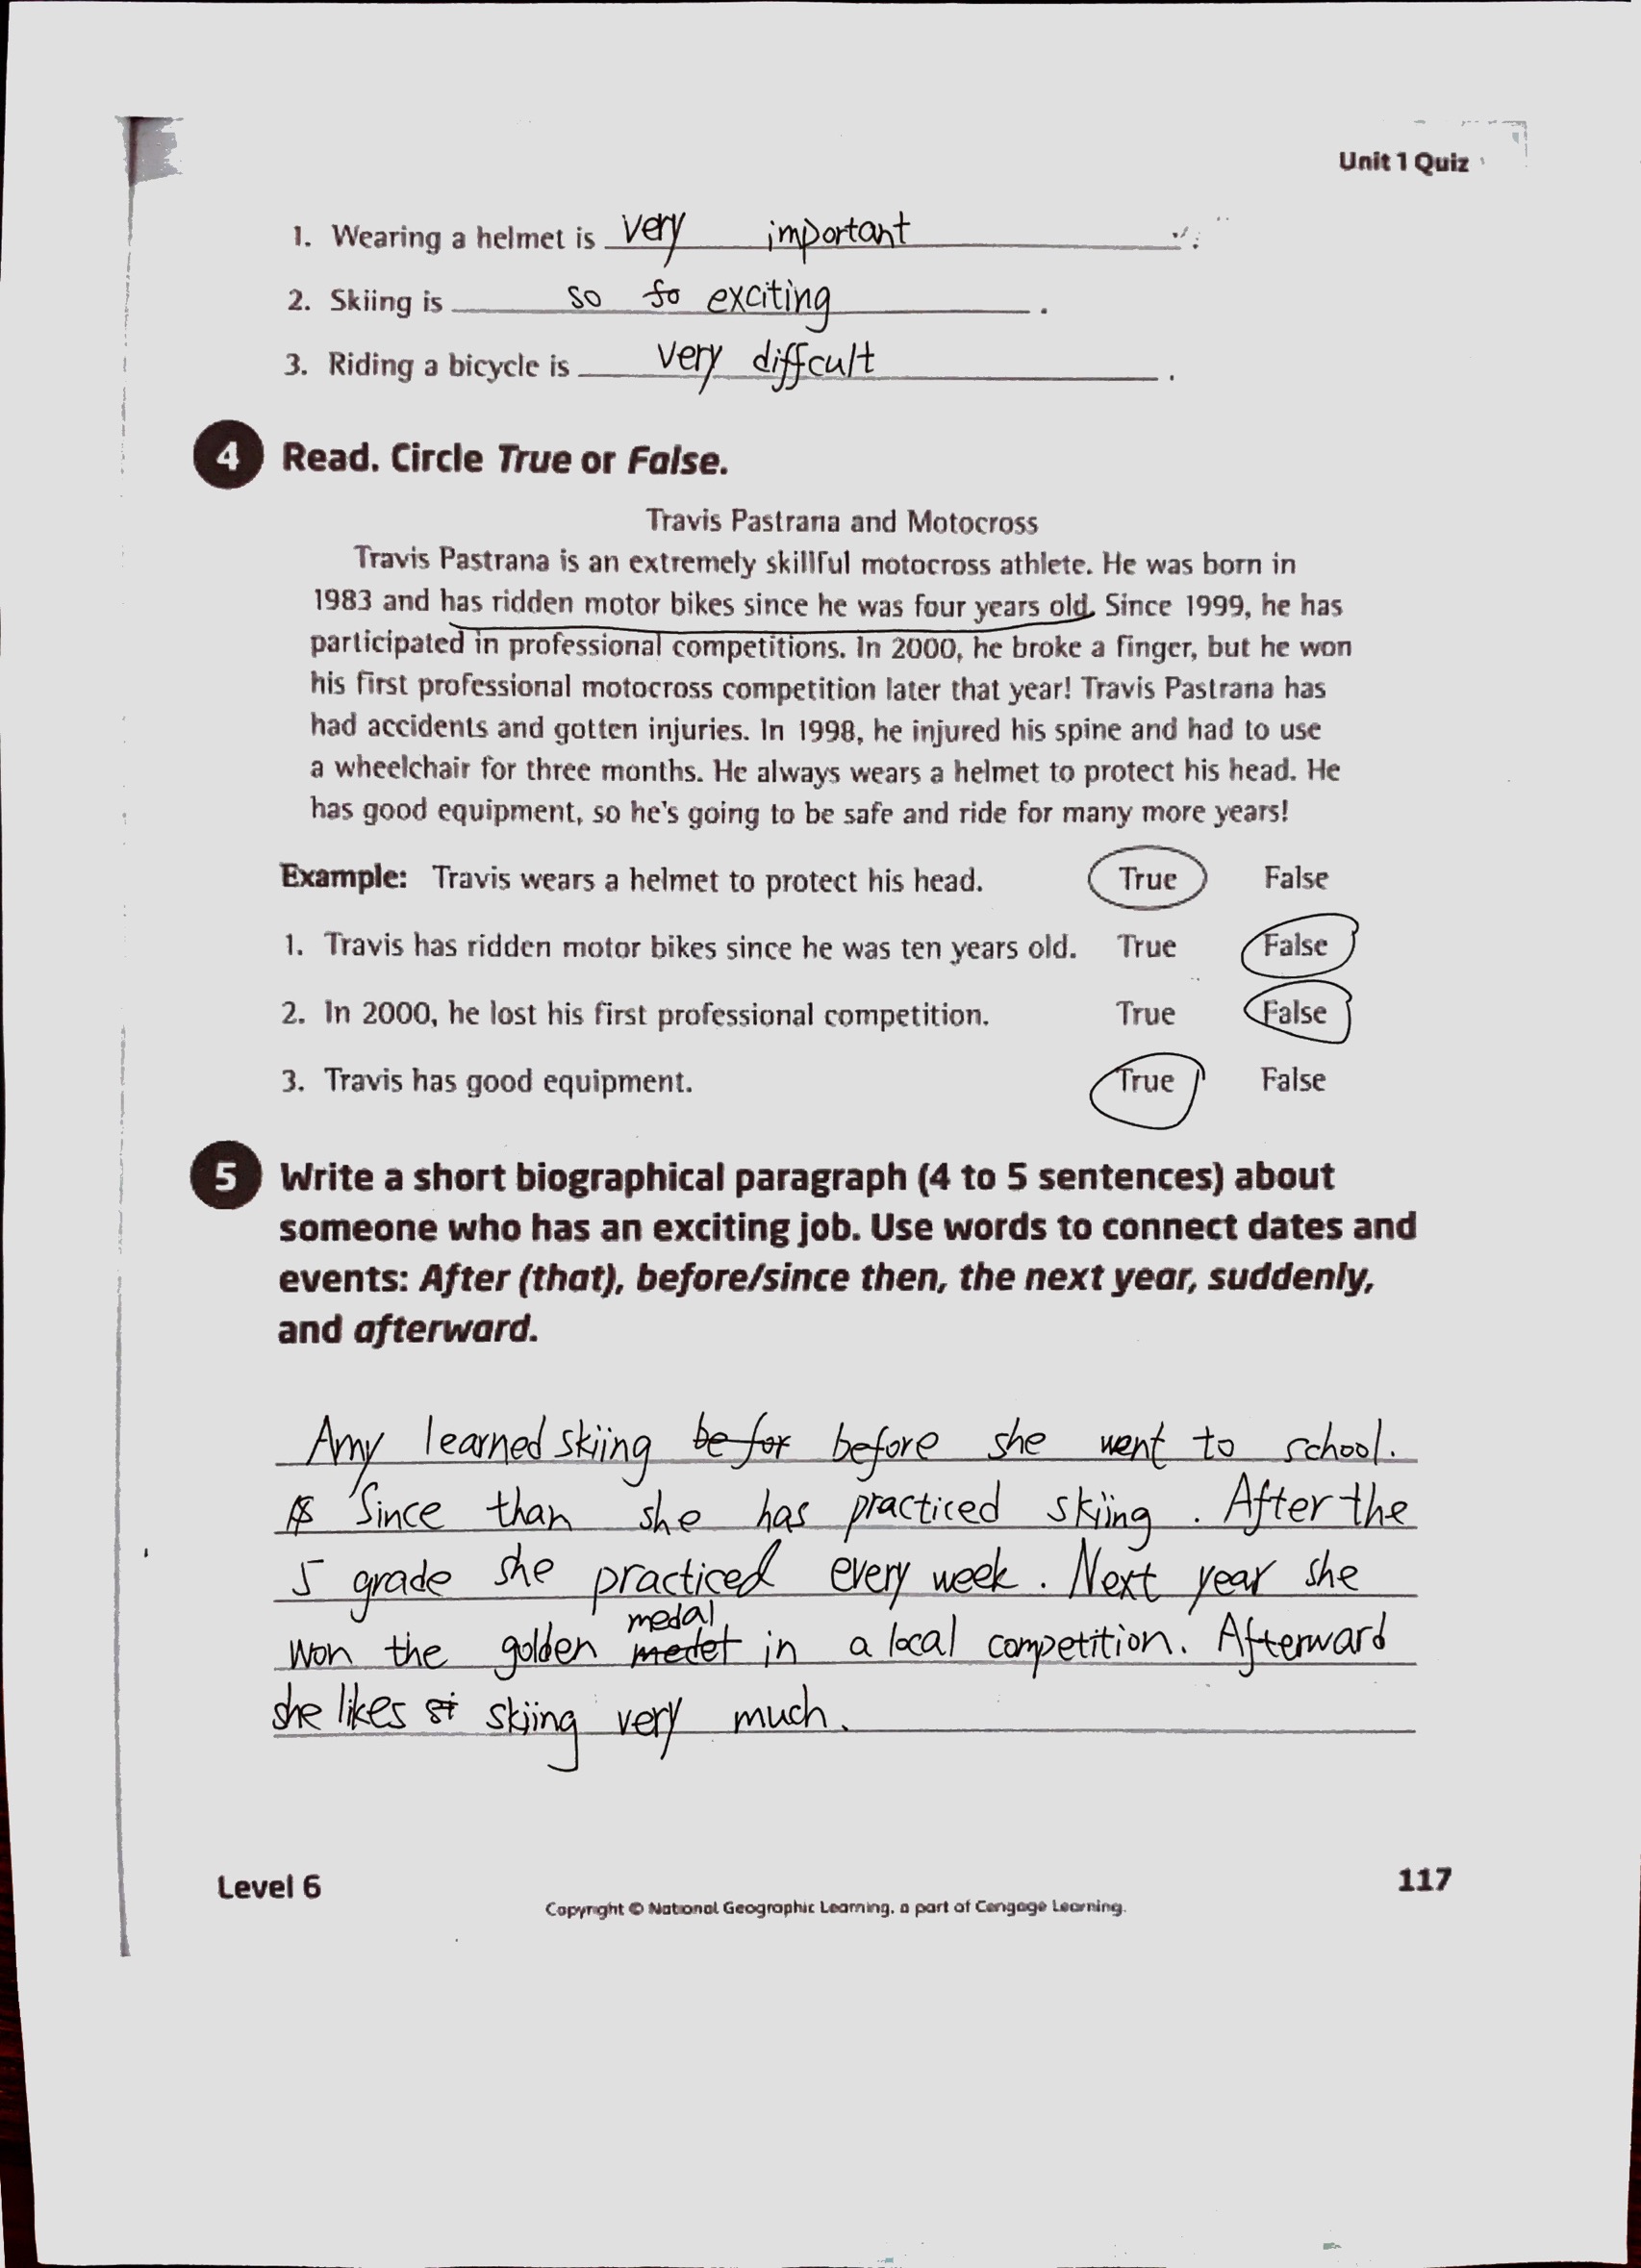 Unit 1 Quiz
1. Wearing a helmet is very important .
2. Skiing is so so exciting .
3. Riding a bicycle is very diffcult .
4 Read. Circle True or False.
Travis Pastrana and Motocross
Travis Pastrana is an extremely skillful motocross athlete. He was born in
1983 and has ridden motor bikes since he was four years old. Since 1999, he has
participated in professional competitions. In 2000, he broke a finger, but he won
his first professional motocross competition later that year! Travis Pastrana has
had accidents and gotten injuries. In 1998, he injured his spine and had to use
a wheelchair for three months. He always wears a helmet to protect his head. He
has good equipment, so he's going to be safe and ride for many more years!
Example: Travis wears a helmet to protect his head. True False
1. Travis has ridden motor bikes since he was ten years old. True False
2. In 2000, he lost his first professional competition. True False
3. Travis has good equipment. True False
5 Write a short biographical paragraph (4 to 5 sentences) about
someone who has an exciting job. Use words to connect dates and
events: After (that), before/since then, the next year, suddenly,
and afterward.
Amy learned skiing befor before she went to school.
Since than she has practiced skiing . After the
5 grade she practiced every week. Next year she
medal
won the golden medet in a local competition. Afterward
she likes skiing very much.
Level 6
117
Copyright © National Geographic Learning, a part of Cengage Learning.